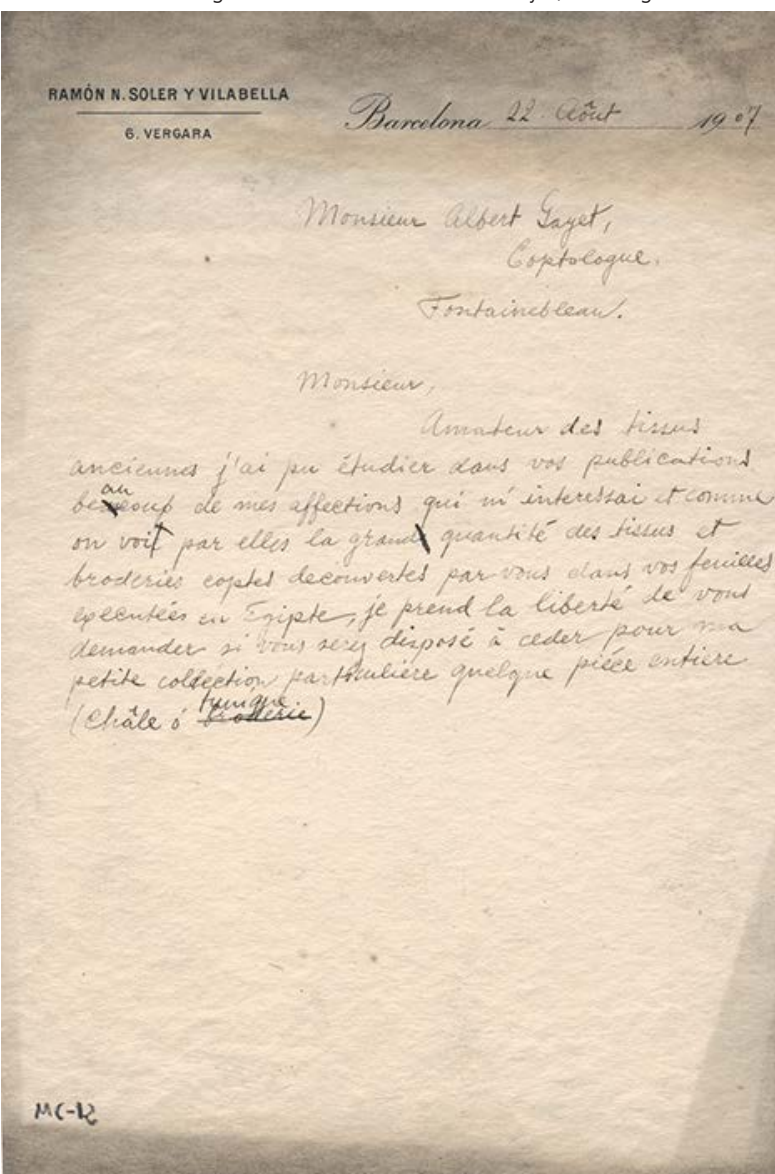 RAMÓN N. SOLER Y VILABELLA
6. VERGARA
Barcelona 22 Aôut 1907
Monsieur Albert Gayet,
Coptologue.
Fontainebleau.
Monsieur,
Amateur des tissus
anciennes j'ai pu étudier dans vos publications
beaucoup de mes affections qui m'interessai et comme
on voit par elles la grand quantité des tissus et
broderies coptes decouvertes par vous dans vos feuilles
executées en Egipte, je prend la liberté de vous
demander si vous serez disposé à ceder pour ma
petite collection particulière quelque piéce entiere
(châle ó broderie tunique)
MC-12